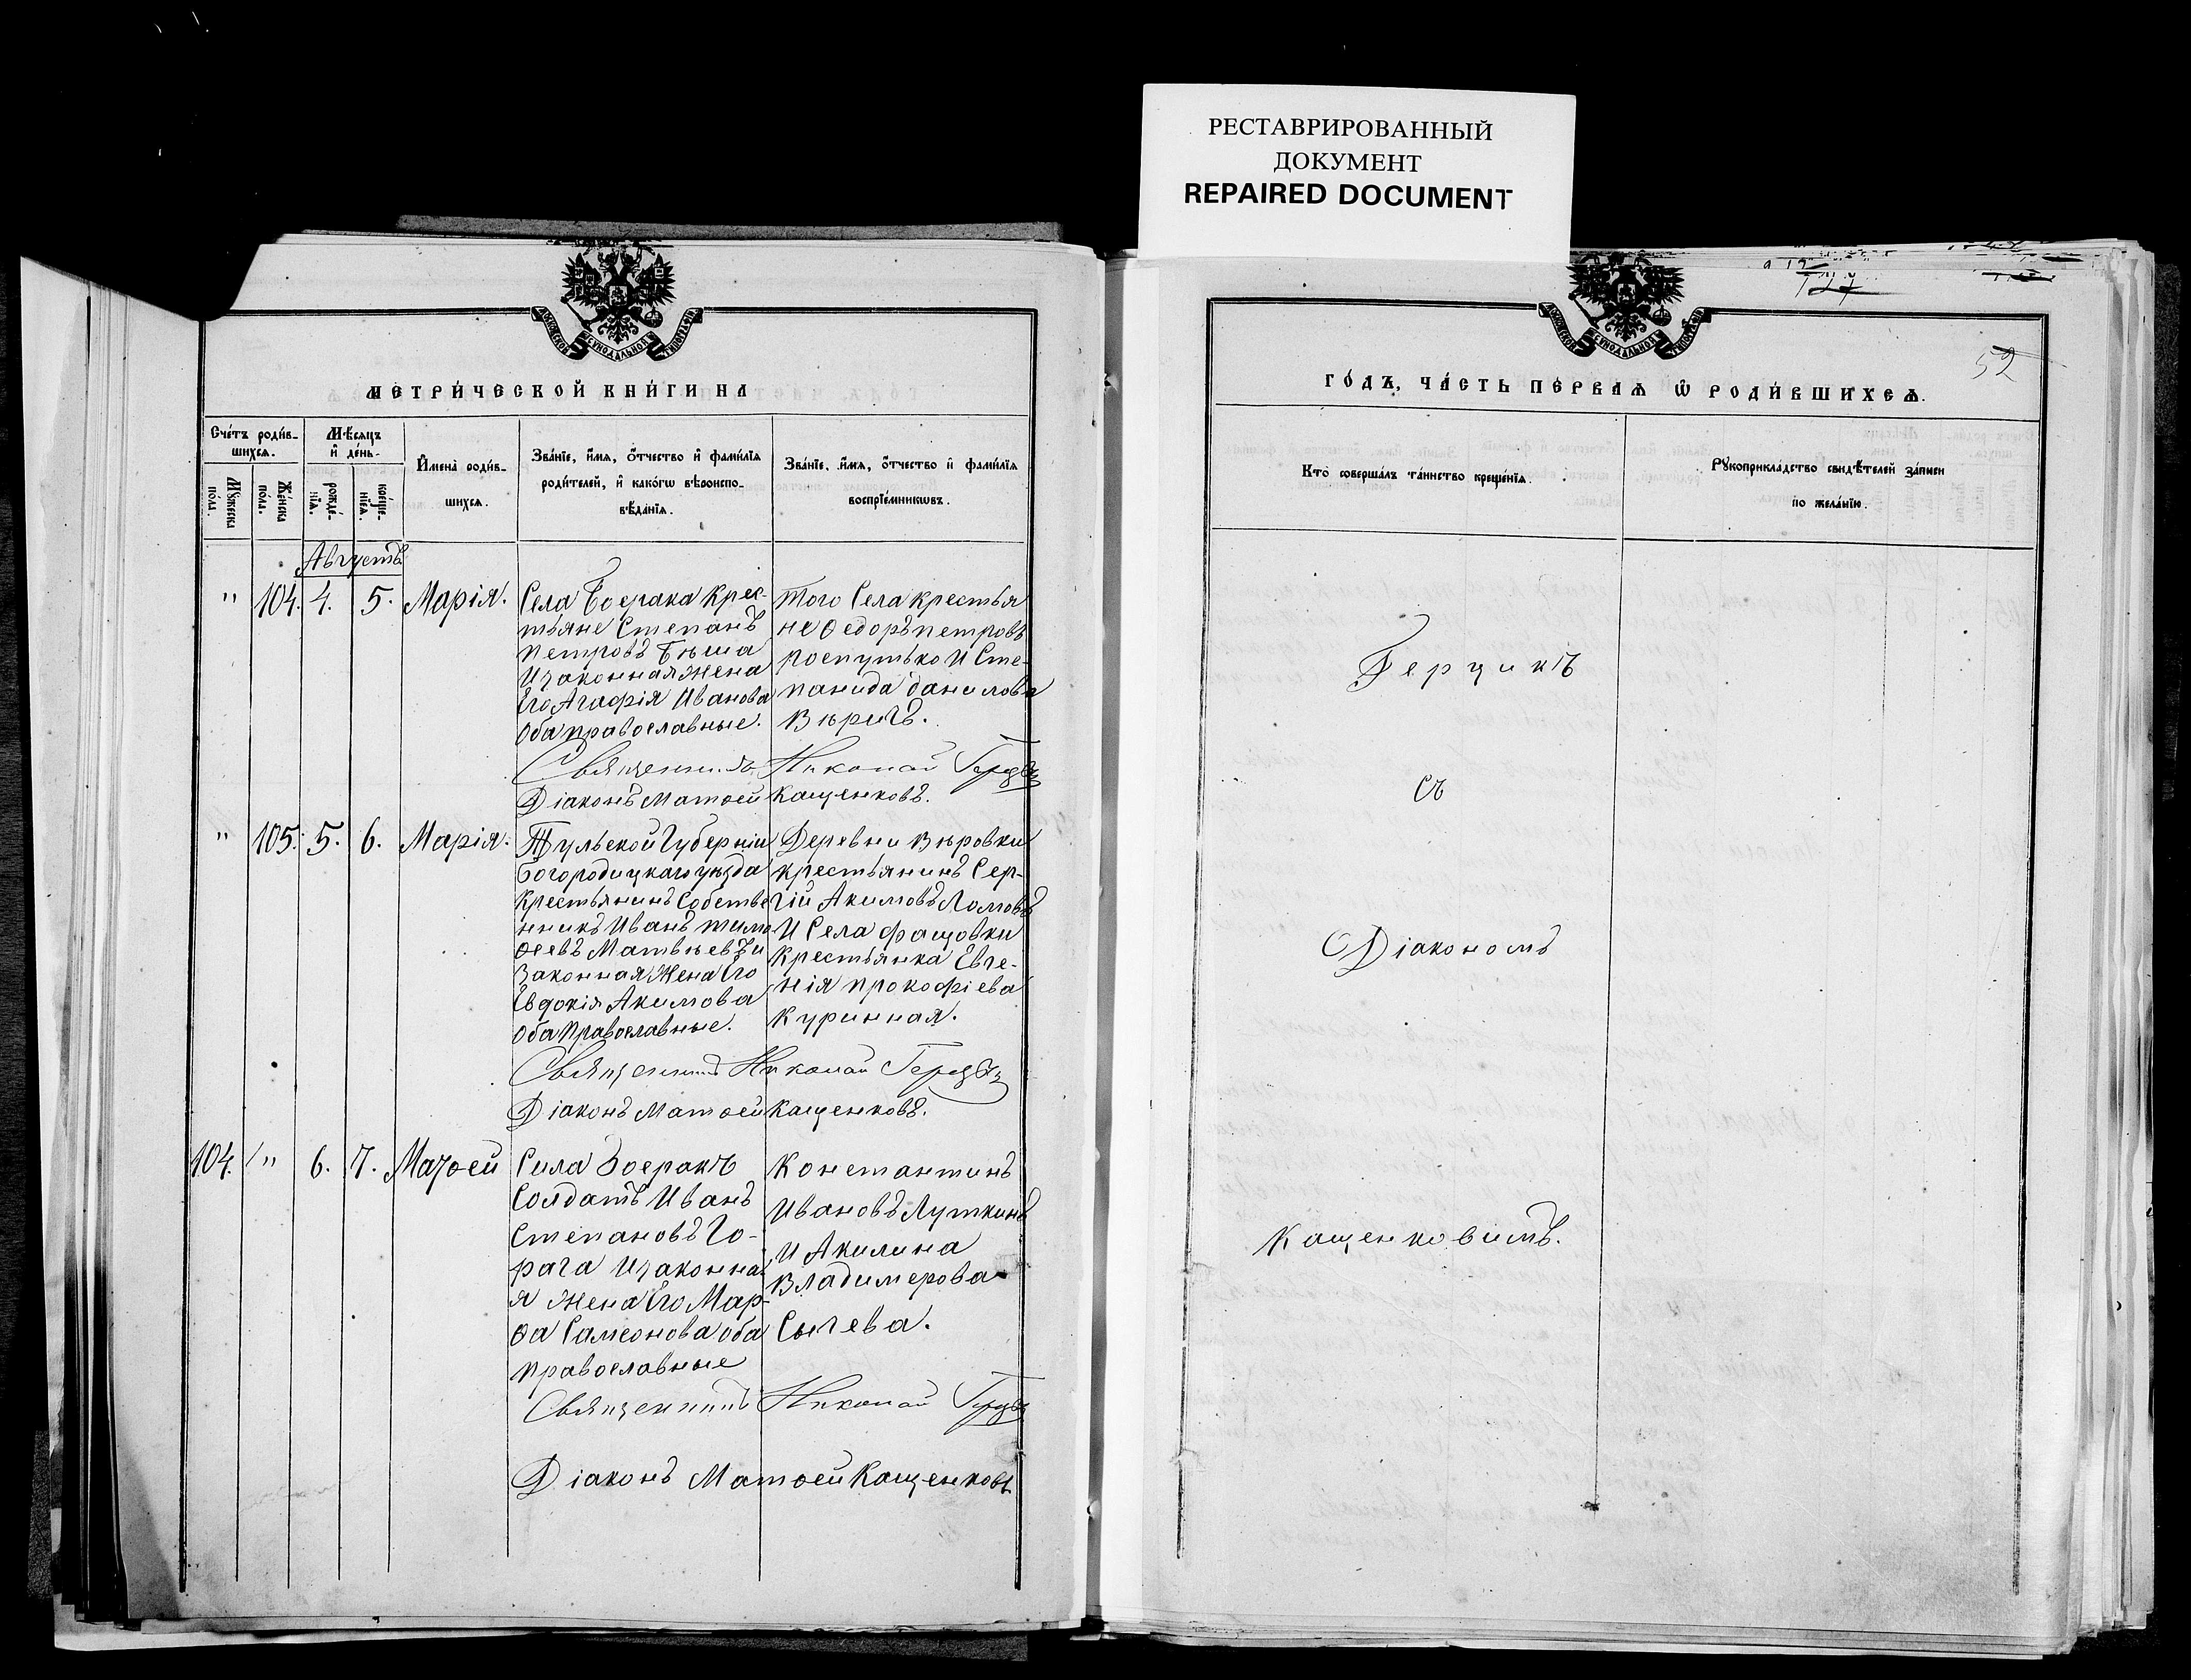 РЕСТАВРИРОВАННЫЙ
ДОКУМЕНТ
REPAIRED DOCUMENT
МОСКОВСКОЙ СѴНОДАЛЬНОЙ ТИПОГРАФІИ
МЕТРИ́ЧЕСКОЙ КНИ́ГИ НА
Сче́тъ роди́в-
шихсѧ.
Мѣ́сѧцъ
и҆ де́нь.
Мꙋ́жеска
по́ла.
Же́нска
по́ла.
рожде́-
нїѧ.
креще́-
нїѧ.
И҆мена̀ роди́в-
шихсѧ.
Зва́нїе, и҆́мѧ, ѻ҆́тчество и҆ фамилїѧ
роди́телей, и҆ како́гѡ вѣроиспо-
вѣ́данїѧ.
Зва́нїе, и҆́мѧ, ѻ҆́тчество и҆ фамилїѧ
воспрїе́мникѡвъ.
Августъ
" 104. 4. 5. Марія.
Села Боерака крес-
тьяне Степанъ
петровъ Бѣша
Изаконная жена
Его Агафія Иванова
оба православные.
того Села крестья
не Ѳедоръ петровъ
роспутько И Сте-
панида данилова
Вѣричъ.
Священникъ Николай Герцыкъ
Діаконъ Матѳей Кащенковъ.
" 105. 5. 6. Марія.
Тульской Губерніи
богородицкаго уѣзда
Крестьянинъ Собстве
нникъ Иванъ тимо
ѳеевъ Матвѣевъ и
законная жена Его
Евдокія Акимова
оба православные.
Деревни Вѣровки
крестьянинъ Сер-
гій Акимовъ Ломовъ
И Села фащовки
Крестьянка Евге-
нія прокофіева
Куринная.
Священникъ Николай Герцыкъ
Діаконъ Матѳей Кащенковъ.
104. " 6. 7. Матѳей
Сила Боеракъ
Солдатъ Иванъ
Степановъ Го-
рага Изаконна
я жена Его Мар-
ѳа Самсонова оба
православные
Константинъ
Ивановъ Луткинъ
И Акилина
Владимерова
Сычева.
Священникъ Николай Герцыкъ
Діаконъ Матѳей Кащенковъ
МОСКОВСКОЙ СѴНОДАЛЬНОЙ ТИПОГРАФІИ
52
ГО́ДЪ, ЧА́СТЬ ПЕ́РВАѦ Ѽ РОДИ́ВШИХСѦ.
Кто̀ соверша́лъ та́инство креще́нїѧ.
Рꙋкоприкла́дство свидѣ́телей за́писи
по жела́нїю.
Герцикъ
съ
Діакономъ
Кащенковимъ.